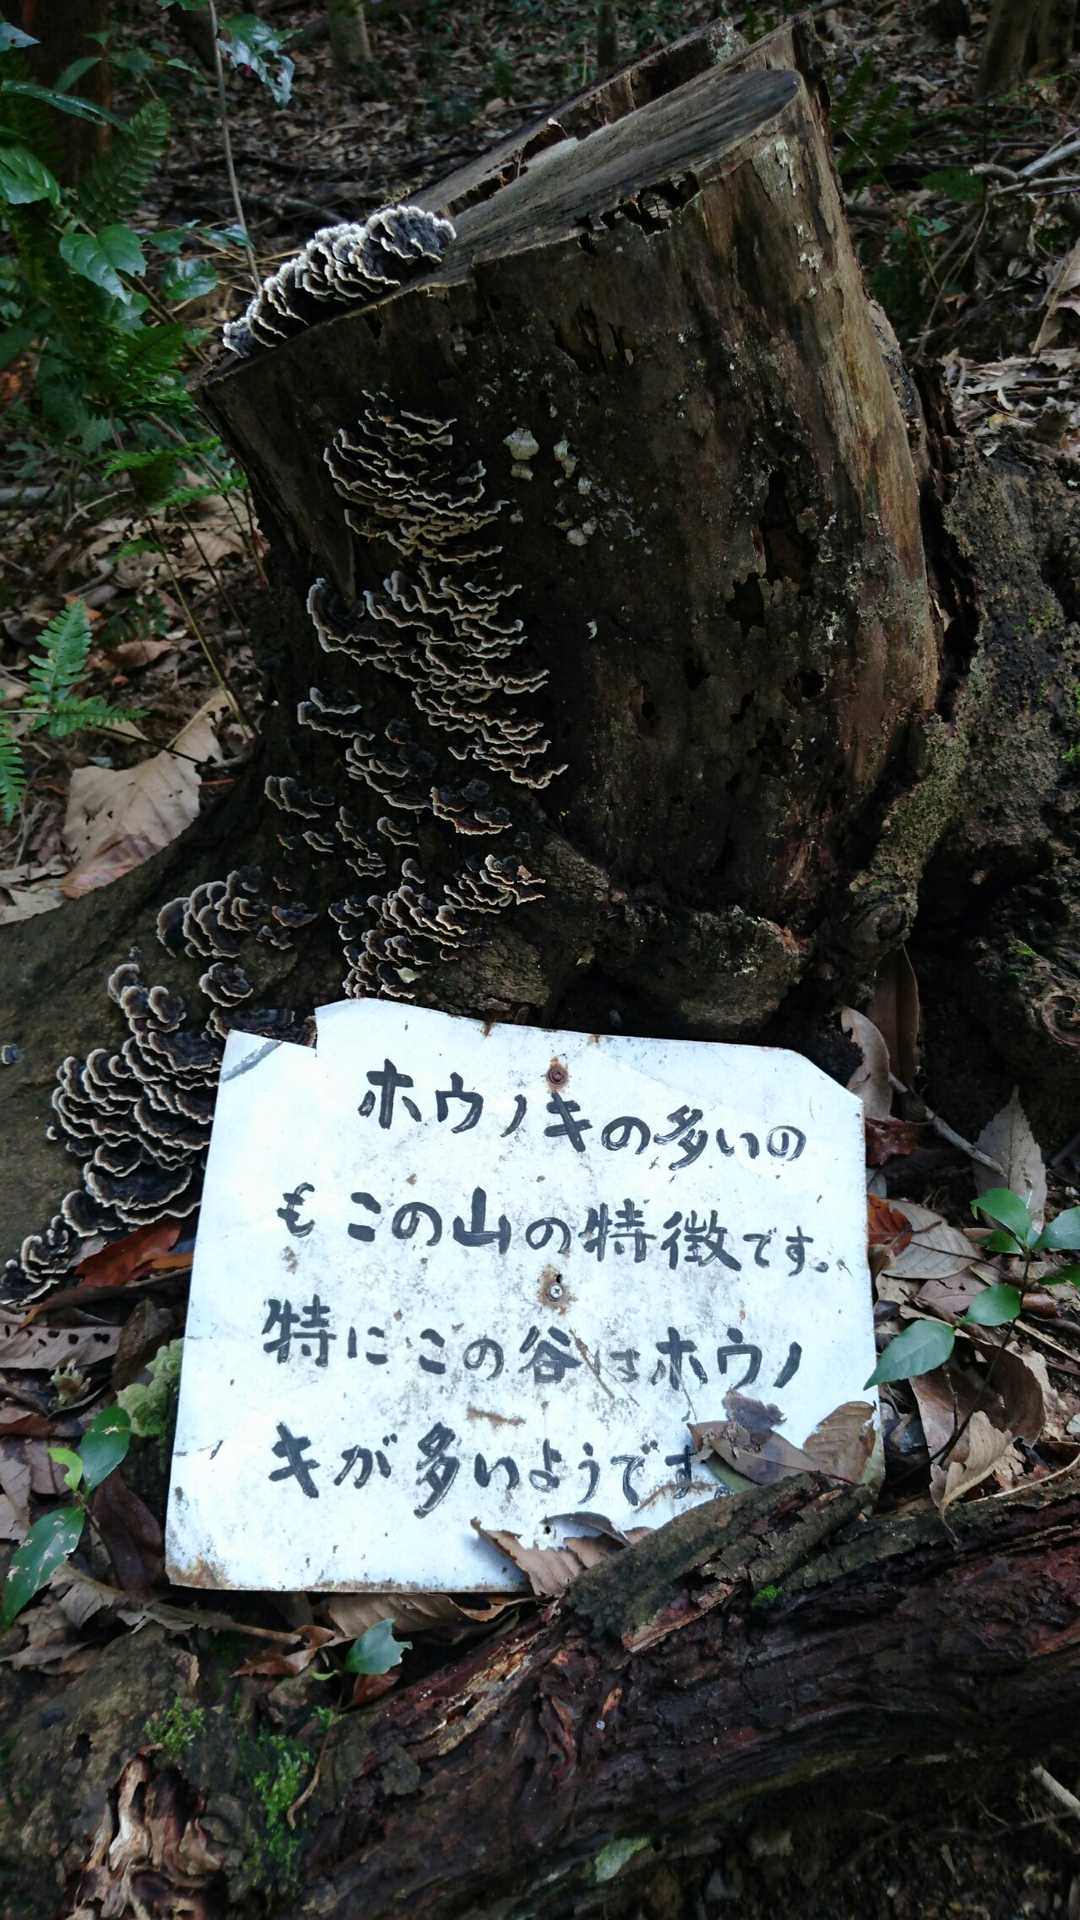 ホウノキの多いの
もこの山の特徴です。
特にこの谷はホウノ
キが多いようです。